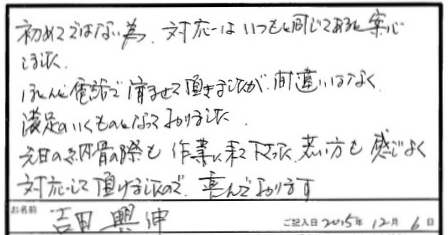 初めてではない為、対応はいつもと同じであると安心
しました
ほとんど電話で済ませて頂きましたが、間違いはなく
満足のいくものとなっております
先日の納骨の際も作業に来て下さった若い方も感じよく
対応して頂けましたので、喜んでおります
お名前 吉田 興伸 ご記入日 2015年12月6日